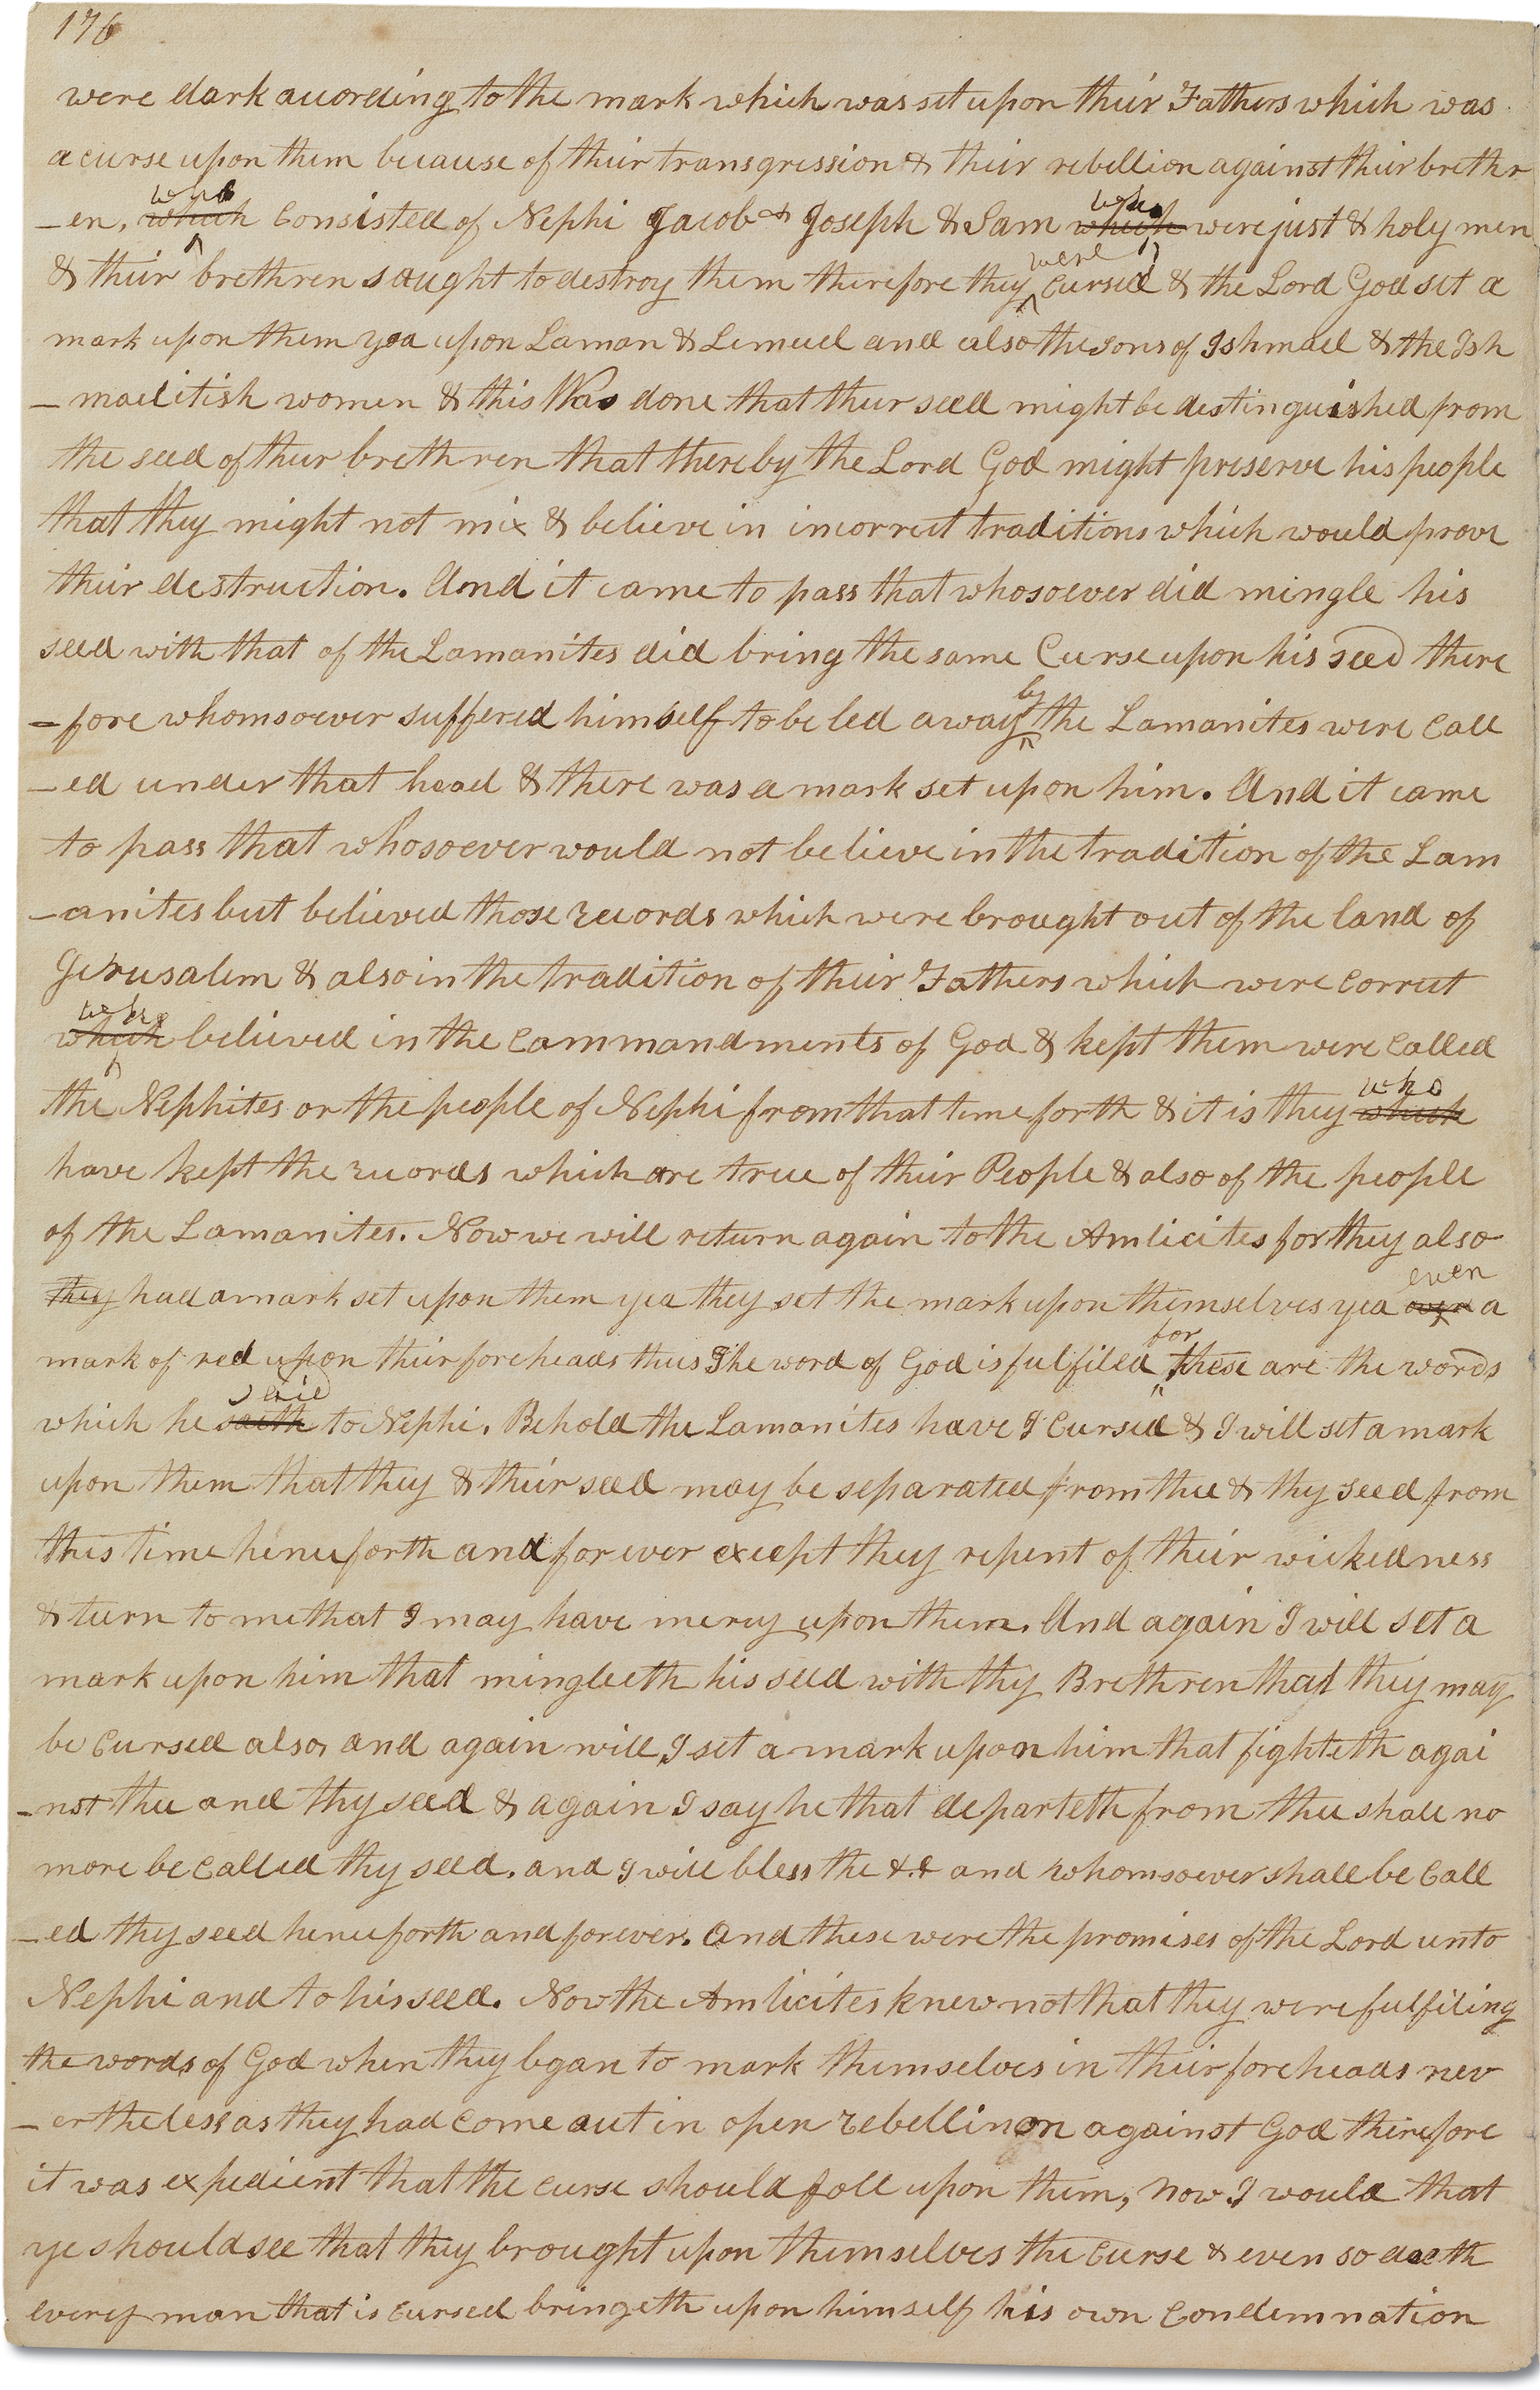 176
were dark according to the mark which was set upon their Fathers which was
a curse upon them because of their transgression & their rebellion against their brethr
who who
-en, which Consisted of Nephi Jacob & Joseph & Sam which were just & holy men
were
& their brethren saught to destroy them therefore they Cursed & the Lord God set a
mark upon them yea upon Laman & Lemuel and also the sons of Ishmael & the Ish
-maelitish women & this Was done that their seed might be destinguished from
the seed of their brethren that thereby the Lord God might preserve his people
that they might not mix & believe in incorrect traditions which would prove
their destruction. And it came to pass that whosoever did mingle his
seed with that of the Lamanites did bring the same Curse upon his seed there
by
-fore whomsoever suffered himself to be led away the Lamanites were Call
-ed under that head & there was a mark set upon him. And it came
to pass that whosoever would not believe in the tradition of the Lam
-anites but believed those records which were brought out of the land of
Jerusalem & also in the tradition of their Fathers which were Correct
who
which believed in the Commandments of God & kept them were Called
who
the Nephites or the people of Nephi from that time forth & it is they which
have kept the records which are true of their People & also of the people
of the Lamanites. Now we will return again to the Amlicites for they also
even
they had a mark set upon them yea they set the mark upon themselves yea a
for
mark of red upon their foreheads thus The word of God is fulfilled these are the words
said
which he saith to Nephi. Behold the Lamanites have I Cursed & I will set a mark
upon them that they & their seed may be separated from thee & thy seed from
this time henceforth and forever except they repent of their wickedness
& turn to me that I may have mercy upon them. And again I will set a
mark upon him that mingleeth his seed with thy Brethren that they may
be Cursed also, and again will I set a mark upon him that fighteth agai
-nst thee and thy seed & again I say he that departeth from thee shall no
more be Called thy seed. and I will bless the &.& and whomsoever shall be Call
-ed thy seed henceforth and forever. And these were the promises of the Lord unto
Nephi and to his seed. Now the Amlicites knew not that they were fulfiling
the words of God when they began to mark themselves in their foreheads nev
-ertheless as they had Come out in open rebellinon against God therefore
it was expedient that the Curse should fall upon them, Now I would that
ye should see that they brought upon themselves the Curse & even so doeth
every man that is Cursed bringeth upon himself his own Condemnation